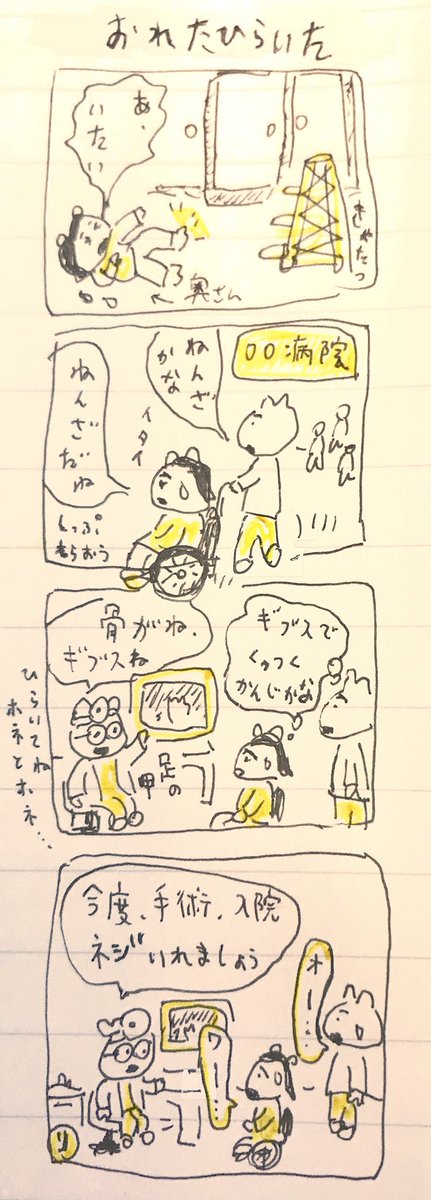 おれたひらいた
あ、
いたい
きゃたつ
←奥さん
〇〇病院
ねんざ
かな
イタイ
ねんざだね
しっぷ
もらおう
ギブスで
くっつく
かんじかな
骨がね、
ギブスね
足の
甲
ひらいてね
ホネとホネ…
今度、手術、入院
ネジいれましょう
オー…
ワー…